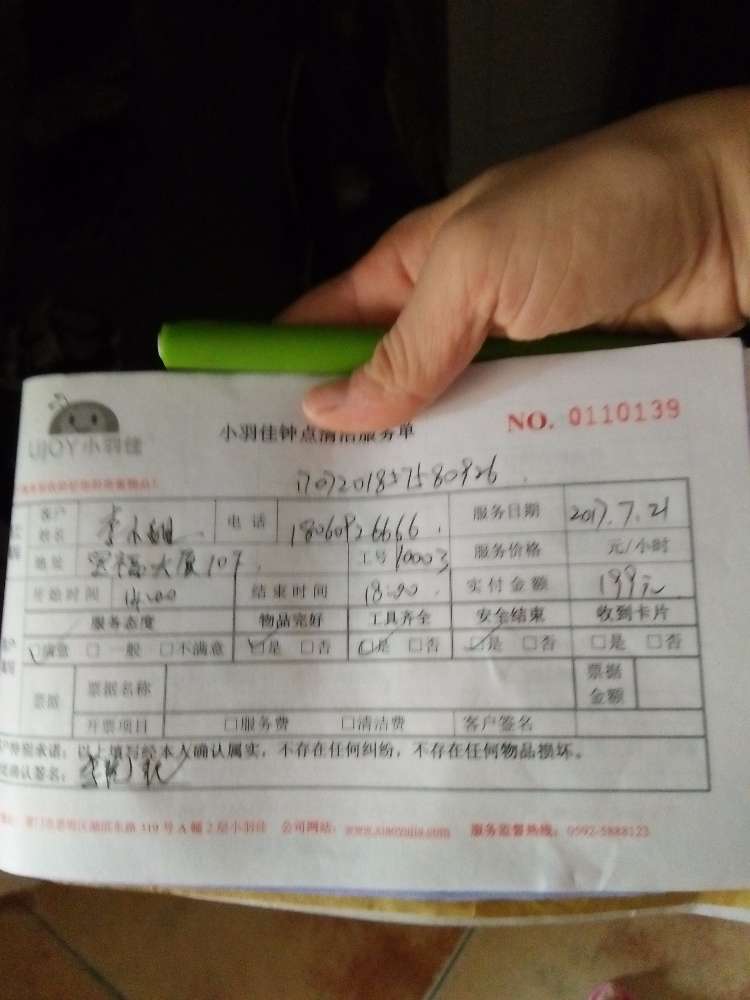 UJOY小羽佳
小羽佳钟点清洁服务单
NO. 0110139
客户姓名 李小姐 电话 18060926666 服务日期 2017.7.21
地址 大厦107 工号 10003 服务价格 元/小时
开始时间 14:00 结束时间 18:00 实付金额 199元
服务态度 物品完好 工具齐全 安全结束 收到卡片
☑满意 □一般 □不满意 ☑是 □否 ☑是 □否 ☑是 □否 □是 □否
票据 票据名称 票据金额
开票项目 □服务费 □清洁费 客户签名
承诺：以上填写经本人确认属实，不存在任何纠纷，不存在任何物品损坏。
确认签名：
319号A幢2层小羽佳 公司网站：www.xiaoyujia.com 服务监督热线：0592-5888123